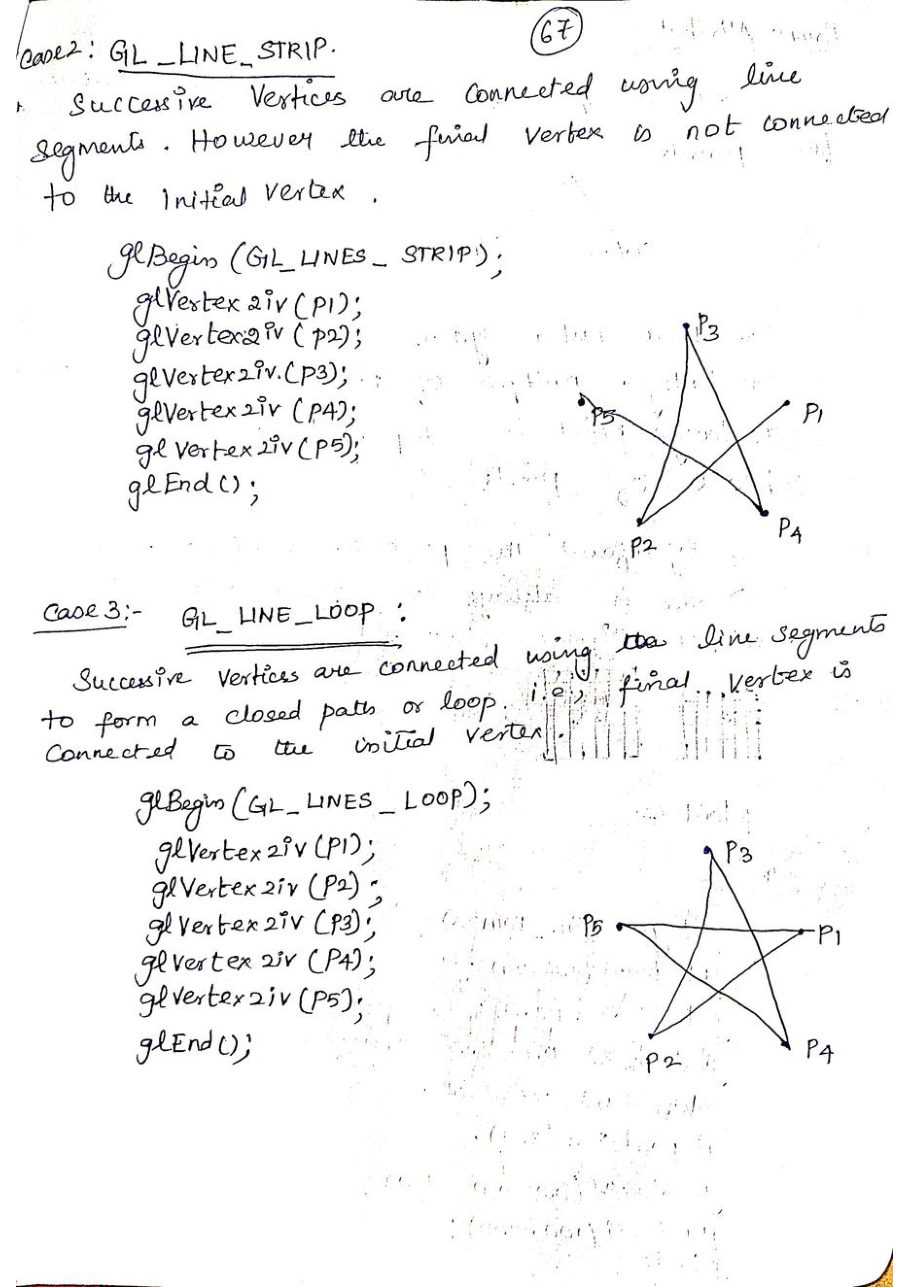 67
Case2: GL_LINE_STRIP.
Successive Vertices are connected using line
segments. However the final vertex is not connected
to the Initial vertex.
glBegin (GL_LINES_STRIP);
glVertex2iv (P1);
glVertex2iv (p2);
glVertex2iv.(p3);
glVertex2iv (P4);
glVertex2iv (P5);
glEnd();
P3
P5
P1
P4
P2
Case 3:- GL_LINE_LOOP :
Successive Vertices are connected using line segments
to form a closed path or loop. i.e, final vertex is
Connected to the initial vertex.
glBegin (GL_LINES_LOOP);
glVertex2iv (P1);
glVertex2iv (P2);
glVertex2iv (P3);
glVertex2iv (P4);
glVertex2iv (P5);
glEnd();
P3
P5
P1
P4
P2